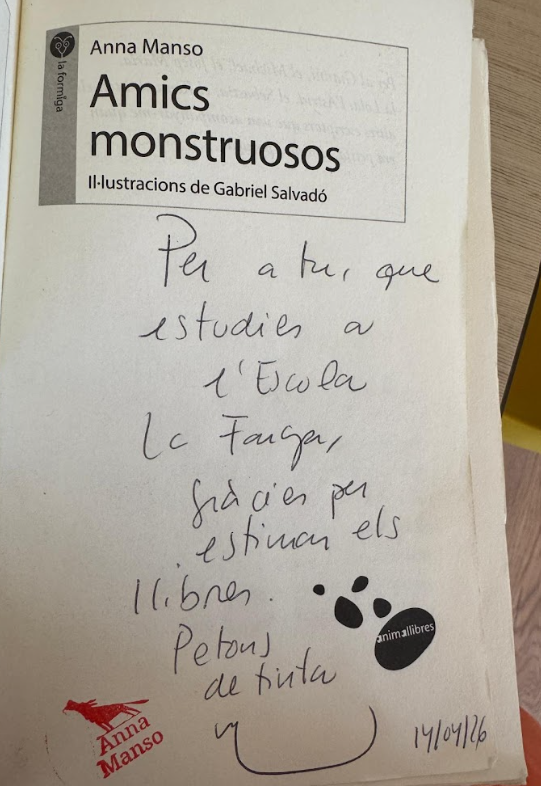 la formiga
Anna Manso
Amics
monstruosos
Il·lustracions de Gabriel Salvadó
Per a tu, que
estudies a
l'Escola
La Farga,
gràcies per
estimar els
llibres.
Petons
de tinta
animallibres
Anna
Manso
14/04/26